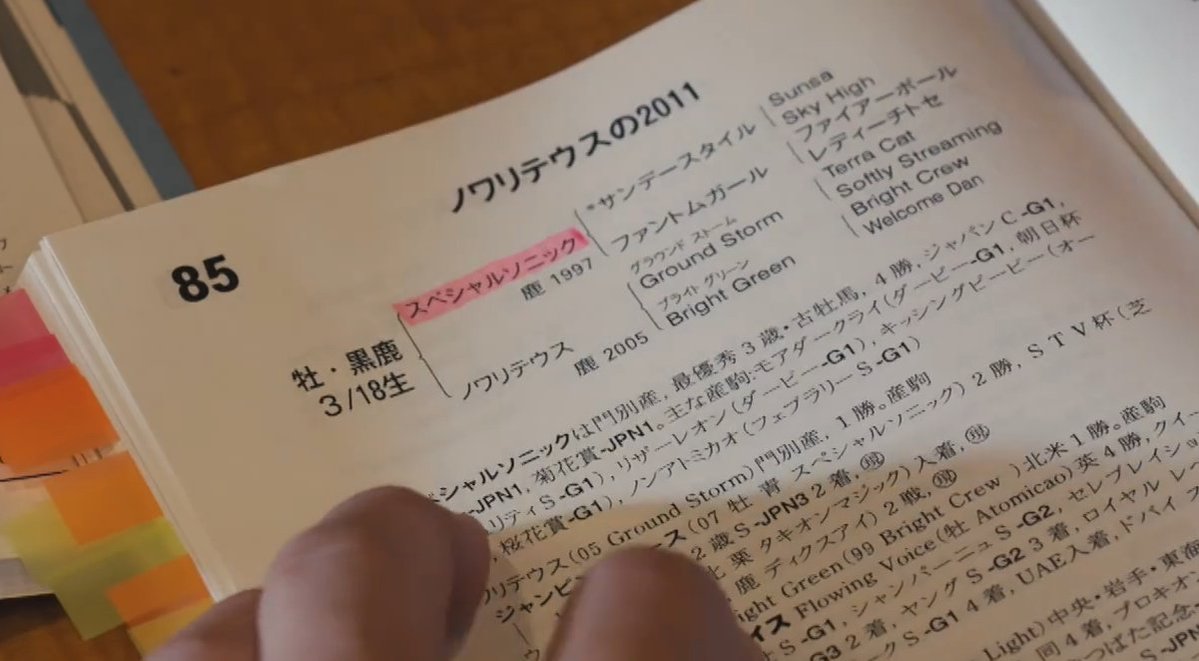 ノワリテウスの2011
85
牡・黒鹿
3/18生
スペシャルソニック
鹿 1997
ノワリテウス
鹿 2005
*サンデースタイル
ファントムガール
グラウンド ストーム
Ground Storm
ブライト グリーン
Bright Green
Sunsa
Sky High
ファイアーボール
レディーチトセ
Terra Cat
Softly Streaming
Bright Crew
Welcome Dan
シャルソニックは門別産, 最優秀3歳・古牡馬, 4勝, ジャパンC-G1,
-JPN1, 菊花賞-JPN1。主な産駒:モアダークライ(ダービー-G1), 朝日杯
リティS-G1), リザーレオン(ダービー-G1), キッシングビービー(オー
桜花賞-G1), ノンアトミカオ(フェブラリーS-G1)
リテウス(05 Ground Storm)門別産, 1勝。産駒
ジャンビ
ース(07 牡 青 スペシャルソニック)2勝, STV杯(芝
2歳S-JPN3 2着, 現
栗 タキオンマジック)入着, 現
鹿 ディクスアイ)2戦, 現
ight Green(99 Bright Crew )北米1勝。産駒
イス Flowing Voice(牡 Atomicao)英4勝, クイー
S-G1, シャンパーニュS-G2, セレブレイショ
G3 2着, ヤングS-G2 3着, ロイヤル レ
クS-G1 4着, UAE入着, ドバイ
Light)中央・岩手・東海
同4着, プロキオ
つばた記念
S-JPN